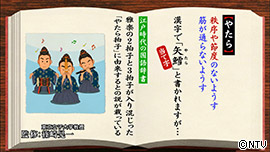 やたら
秩序や節度のないようす
筋が通らないようす
漢字で「矢鱈」と書かれますが…
やたら
当て字
江戸時代の国語辞書
雅楽の2拍子と3拍子が入り混じった
「やたら拍子」に由来するとの説が載っている
監修:篠崎晃一
©NTV